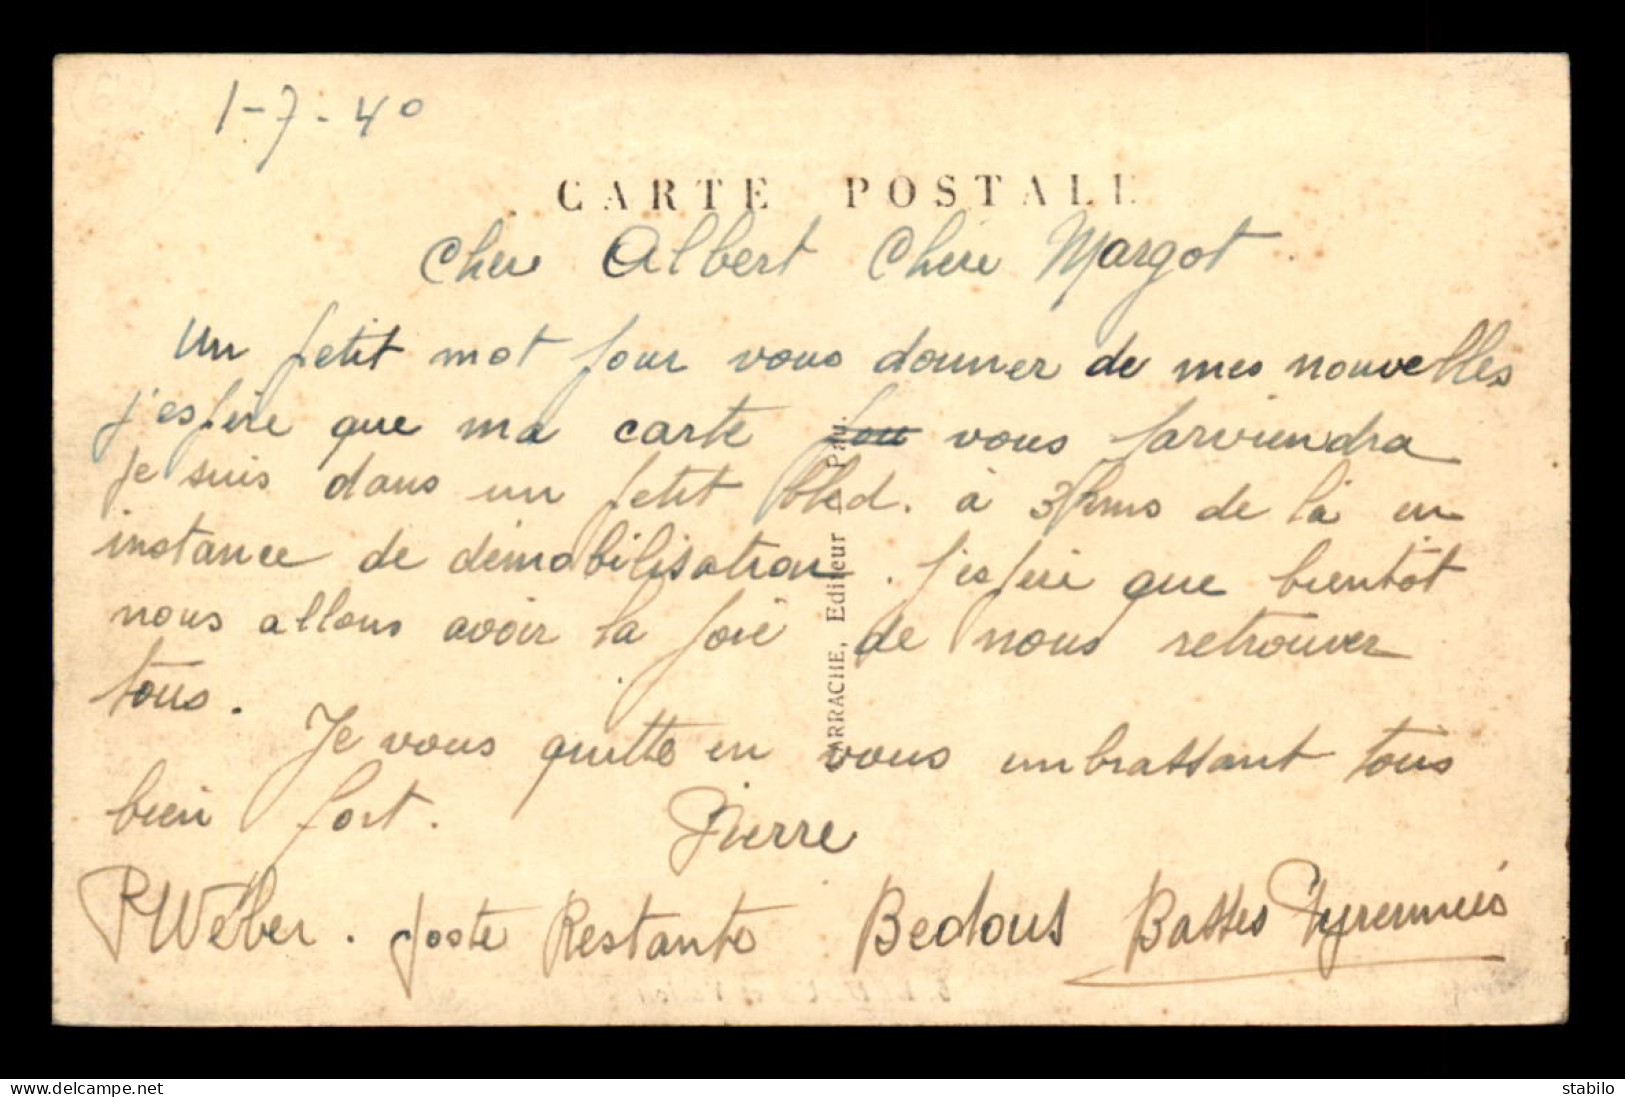 1-7-40
CARTE POSTALE
Cher Albert Chère Margot
Un petit mot pour vous donner de mes nouvelles
j'espère que ma carte vous parviendra
Je suis dans un petit bled. à 3 kms de là en
instance de démobilisation. J'espère que bientôt
nous allons avoir la joie de nous retrouver
tous.
Je vous quitte en vous embrassant tous
bien fort. Pierre
P Wéber. Poste Restante Bedous Basses Pyrennées
ARRACHE, Editeur Pau.
delcampe.net
stabilo